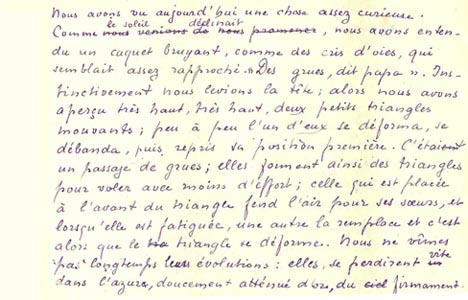 Nous avons vu aujourd'hui une chose assez curieuse.
le soleil déclinait
Comme nous venions de nous promener, nous avons enten-
du un caquet bruyant, comme des cris d'oies, qui
semblait assez rapproché. « Des grues, dit papa ». Ins-
tinctivement nous levions la tête ; alors nous avons
aperçu très haut, très haut, deux petits triangles
mouvants ; peu à peu l'un d'eux se déforma, se
débanda, puis reprit sa position première. C'étaient
un passage de grues ; elles forment ainsi des triangles
pour voler avec moins d'effort ; celle qui est placée
à l'avant du triangle fend l'air pour ses sœurs, et
lorsqu'elle est fatiguée, une autre la remplace et c'est
alors que le triangle se déforme. Nous ne vîmes
pas longtemps leurs évolutions : elles se perdirent vite
dans l'azur, doucement atténué d'or, du ciel firmament.